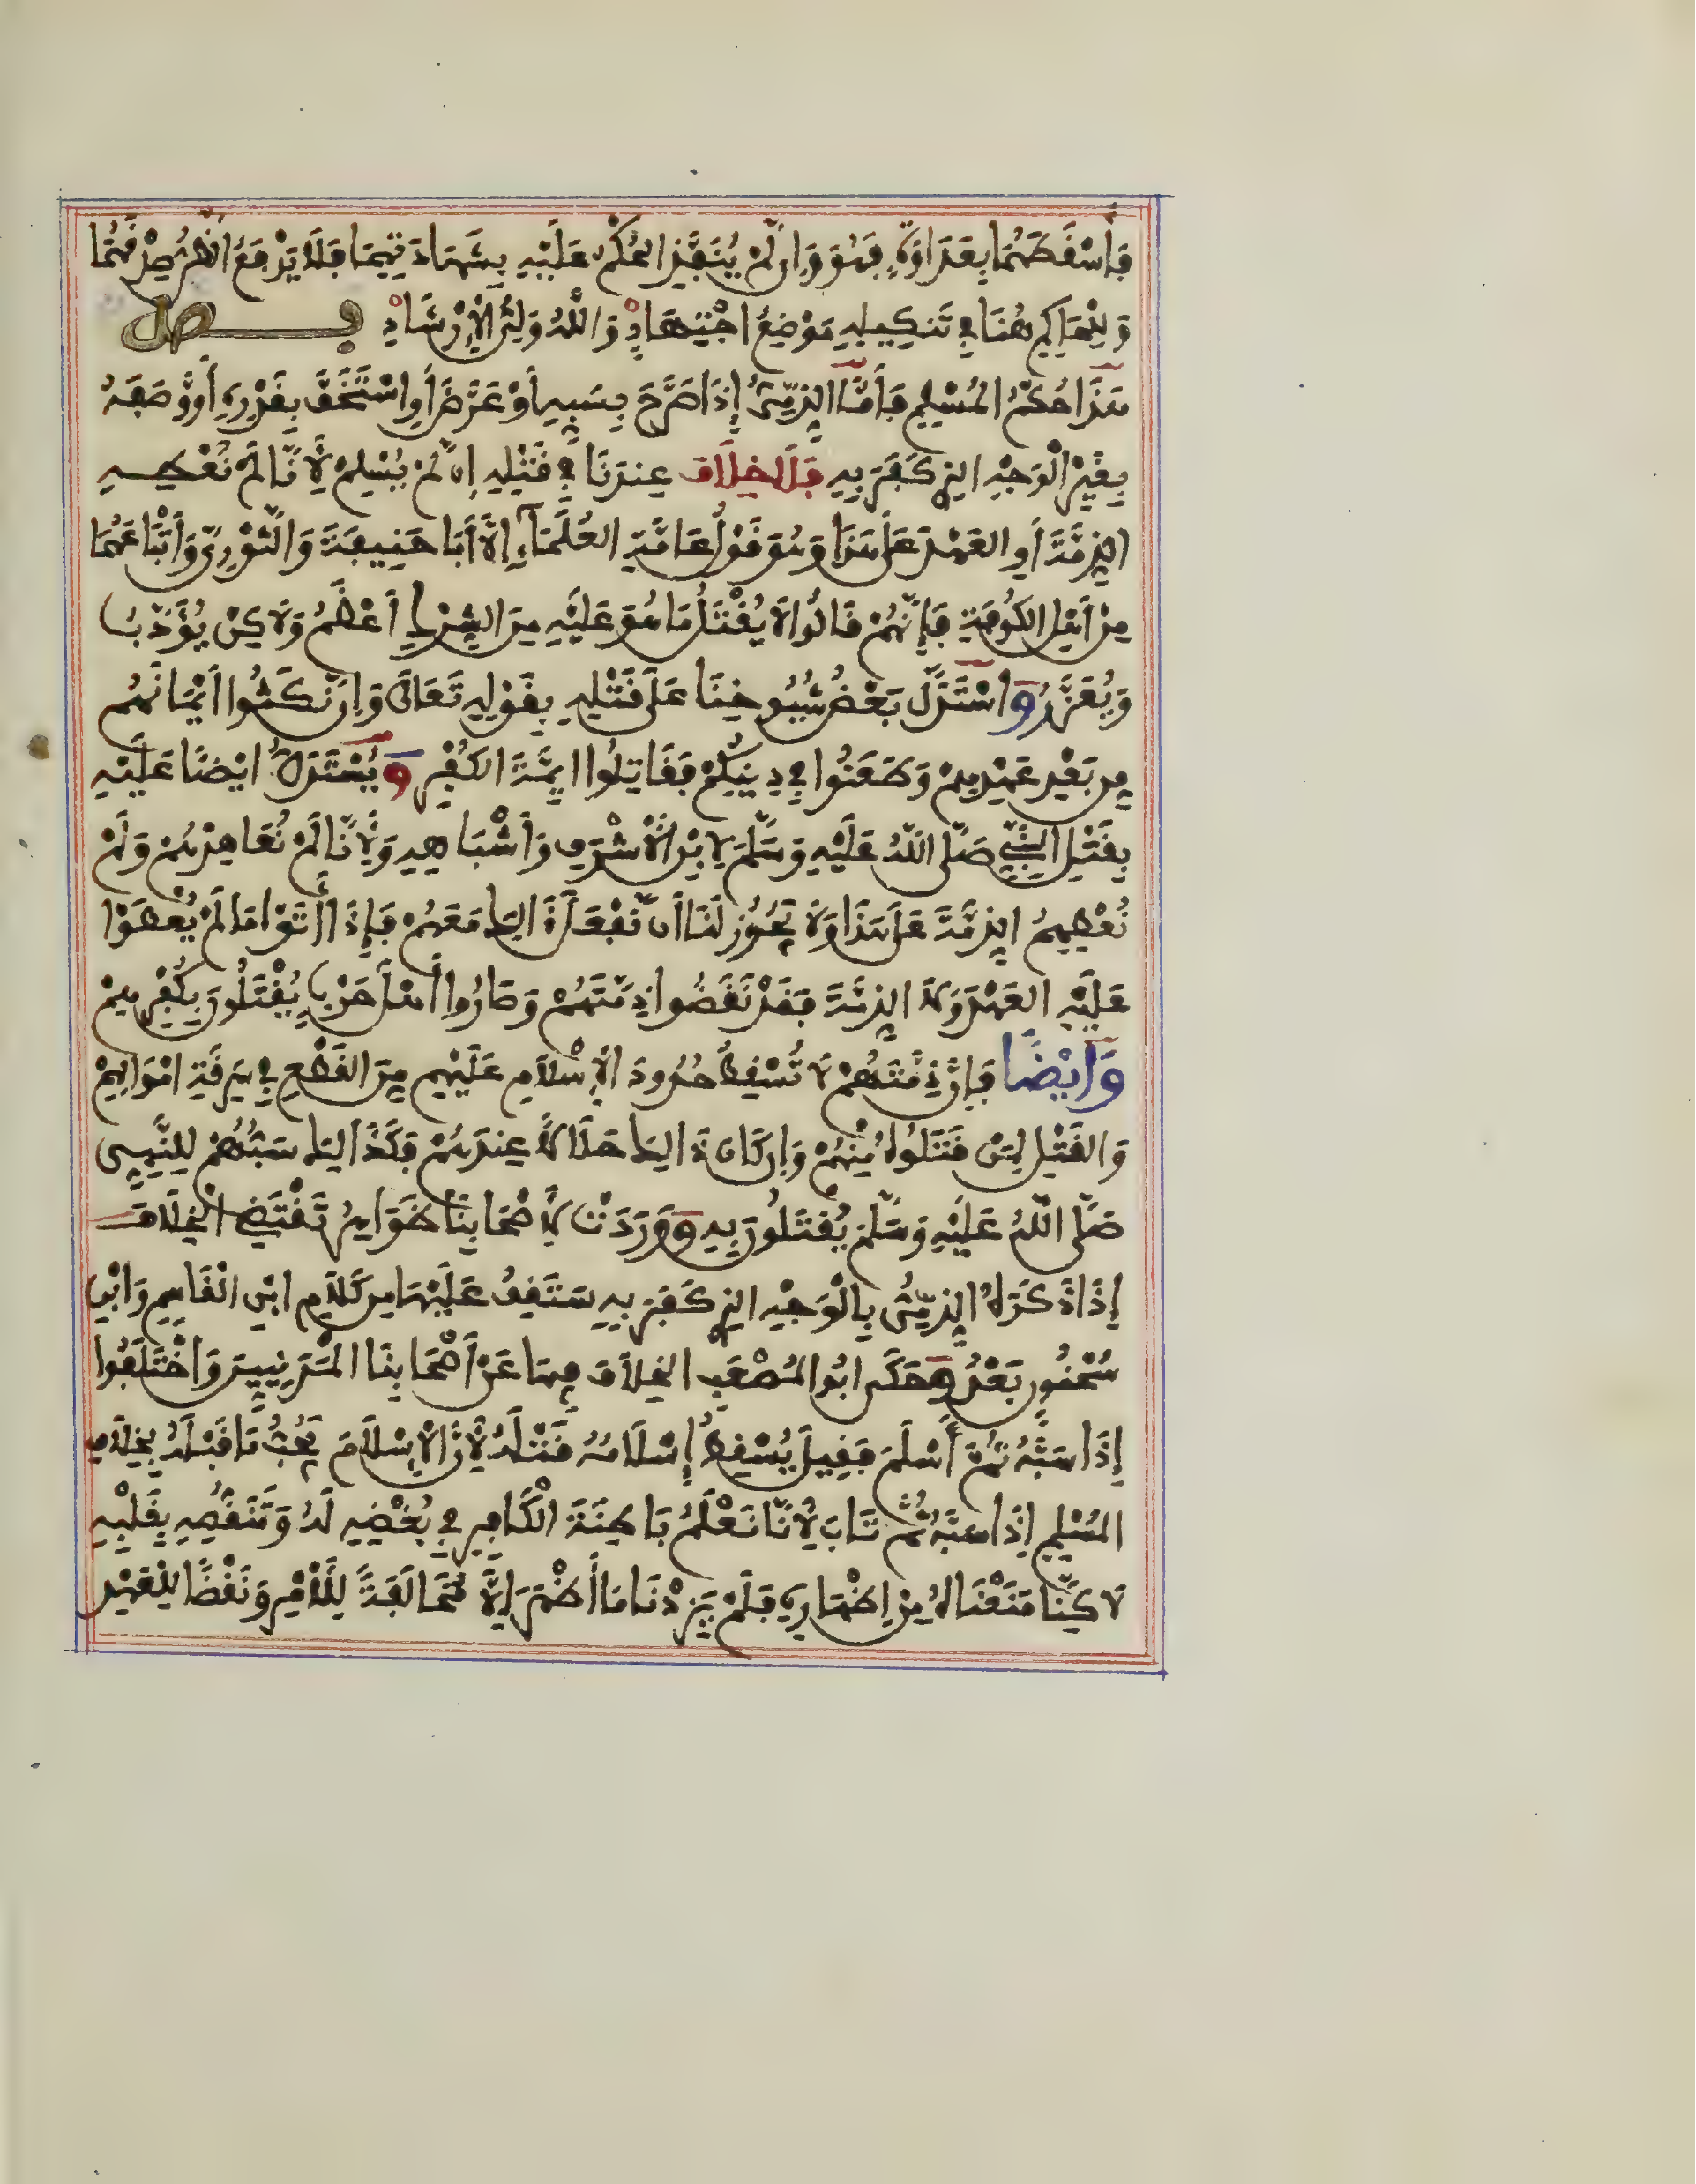 فَأَسْقَطَهُمَا بِعَدَاوَةٍ فَهُوَ وَإِن لَّمْ يُنَفَّذِ الحُكْمُ عَلَيْهِ بِشَهَادَتِهِمَا فَلَا يَدْفَعُ الظَّنُّ صِدْقَهُمَا
وَلِلْحَاكِمِ هُنَا فِي تَنْكِيلِهِ مَوْضِعُ اجْتِهَادٍ وَاللَّهُ وَلِيُّ الْإِرْشَادِ فصل
هَذَا حُكْمُ الْمُسْلِمِ فَأَمَّا الذِّمِّيُّ إِذَا صَرَّحَ بِسَبِّهِ أَوْ عَرَّضَ أَوِ اسْتَخَفَّ بِقَدْرِهِ أَوْ وَصَفَهُ
بِغَيْرِ الْوَجْهِ الذِي كَفَرَ بِهِ فَلَا خِلَافَ عِندَنَا فِي قَتْلِهِ إِن لَّمْ يُسْلِمْ لِأَنَّا لَمْ نُعْطِهِ
الذِّمَّةَ أَوِ العَهْدَ عَلَى هَذَا وَهُوَ قَوْلُ عَامَّةِ العُلَمَاءِ إِلَّا أَبَا حَنِيفَةَ وَالثَّوْرِيَّ وَأَتْبَاعَهُمَا
مِنْ أَهْلِ الكُوفَةِ فَإِنَّهُمْ قَالُوا لَا يُقْتَلُ مَا هُوَ عَلَيْهِ مِنَ الشِّرْكِ أَعْظَمُ وَلَاكِنْ يُؤَدَّبُ
وَيُعَزَّرُ وَاسْتَدَلَّ بَعْضُ شُيُوخِنَا عَلَى قَتْلِهِ بِقَوْلِهِ تَعَالَى وَإِن نَّكَثُوا أَيْمَانَهُم
مِن بَعْدِ عَهْدِهِمْ وَطَعَنُوا فِي دِينِكُمْ فَقَاتِلُوا أَيِمَّةَ الكُفْرِ وَيُسْتَدَلُّ ايْضًا عَلَيْهِ
بِقَتْلِ النَّبِيِّ صَلَّى اللَّهُ عَلَيْهِ وَسَلَّمَ لِابْنِ الْأَشْرَفِ وَأَشْبَاهِهِ وَلِأَنَّا لَمْ نُعَاهِدْهُمْ وَلَمْ
نُعْطِهِمُ الذِّمَّةَ عَلَى هَذَا وَلَا يَجُوزُ لَنَا أَن نَّفْعَلَ ذَالِكَ مَعَهُمْ فَإِذَا أَتَوْا مَا لَمْ يُعْطَوْا
عَلَيْهِ العَهْدَ وَلَا الذِّمَّةَ فَقَدْ نَقَضُوا ذِمَّتَهُمْ وَصَارُوا أَهْلَ حَرْبٍ يُقْتَلُونَ بِكُفْرِهِمْ
وَأَيْضًا فَإِنَّ ذِمَّتَهُمْ لَا تُسْقِطُ حُدُودَ الْإِسْلَامِ عَلَيْهِم مِنَ القَطْعِ فِي سَرِقَةِ امْوَالِهِمْ
وَالقَتْلِ لِمَن قَتَلُوهُ مِنْهُمْ وَإِن كَانَ ذَالِكَ حَلَالًا عِندَهُمْ فَكَذَالِكَ سَبُّهُمْ لِلنَّبِيِّ
صَلَّى اللَّهُ عَلَيْهِ وَسَلَّمَ يُقْتَلُونَ بِهِ وَوَرَدَتْ لِأَصْحَابِنَا ظَوَاهِرُ تَقْتَضِي الْخِلَافَ
إِذَا ذَكَرَهُ الذِّمِّيُّ بِالْوَجْهِ الذِي كَفَرَ بِهِ سَتَقِفُ عَلَيْهَا مِن كَلَامِ ابْنِ الْقَاسِمِ وَابْنِ
سُحْنُونٍ بَعْدُ وَحَكَى ابُو الْمُصْعَبِ الخِلَافَ فِيهَا عَنْ أَصْحَابِنَا الْمَدَنِيِّينَ وَاخْتَلَفُوا
إِذَا سَبَّهُ ثُمَّ أَسْلَمَ فَقِيلَ يُسْقِطُ إِسْلَامُهُ قَتْلَهُ لِأَنَّ الْإِسْلَامَ يَجُبُّ مَا قَبْلَهُ بِخِلَافِ
الْمُسْلِمِ إِذَا سَبَّهُ ثُمَّ تَابَ لِأَنَّا نَعْلَمُ بَاطِنَةَ الْكَافِرِ فِي بُغْضِهِ لَهُ وَتَنَقُّصِهِ بِقَلْبِهِ
لَاكِنَّا مَنَعْنَاهُ مِنْ إِظْهَارِهِ فَلَمْ يَزِدْنَا مَا أَظْهَرَ إِلَّا مُخَالَفَةً لِلْأَمْرِ وَنَقْضًا لِلْعَهْدِ